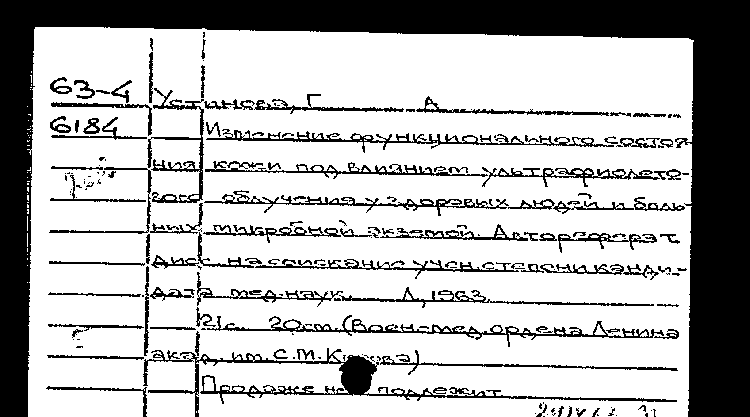 63-4 Устинова, Г А
6184 Изменение функционального состоя-
ния кожи под влиянием ультрафиолето-
вого облучения у здоровых людей и боль-
ных микробной экземой. Автореферат
дис. на соискание учен. степени канди-
дата мед. наук. Л., 1963.
21с. 20см. (Воен.-мед. ордена Ленина
акад. им. С.М. Кирова)
Продаже не подлежит